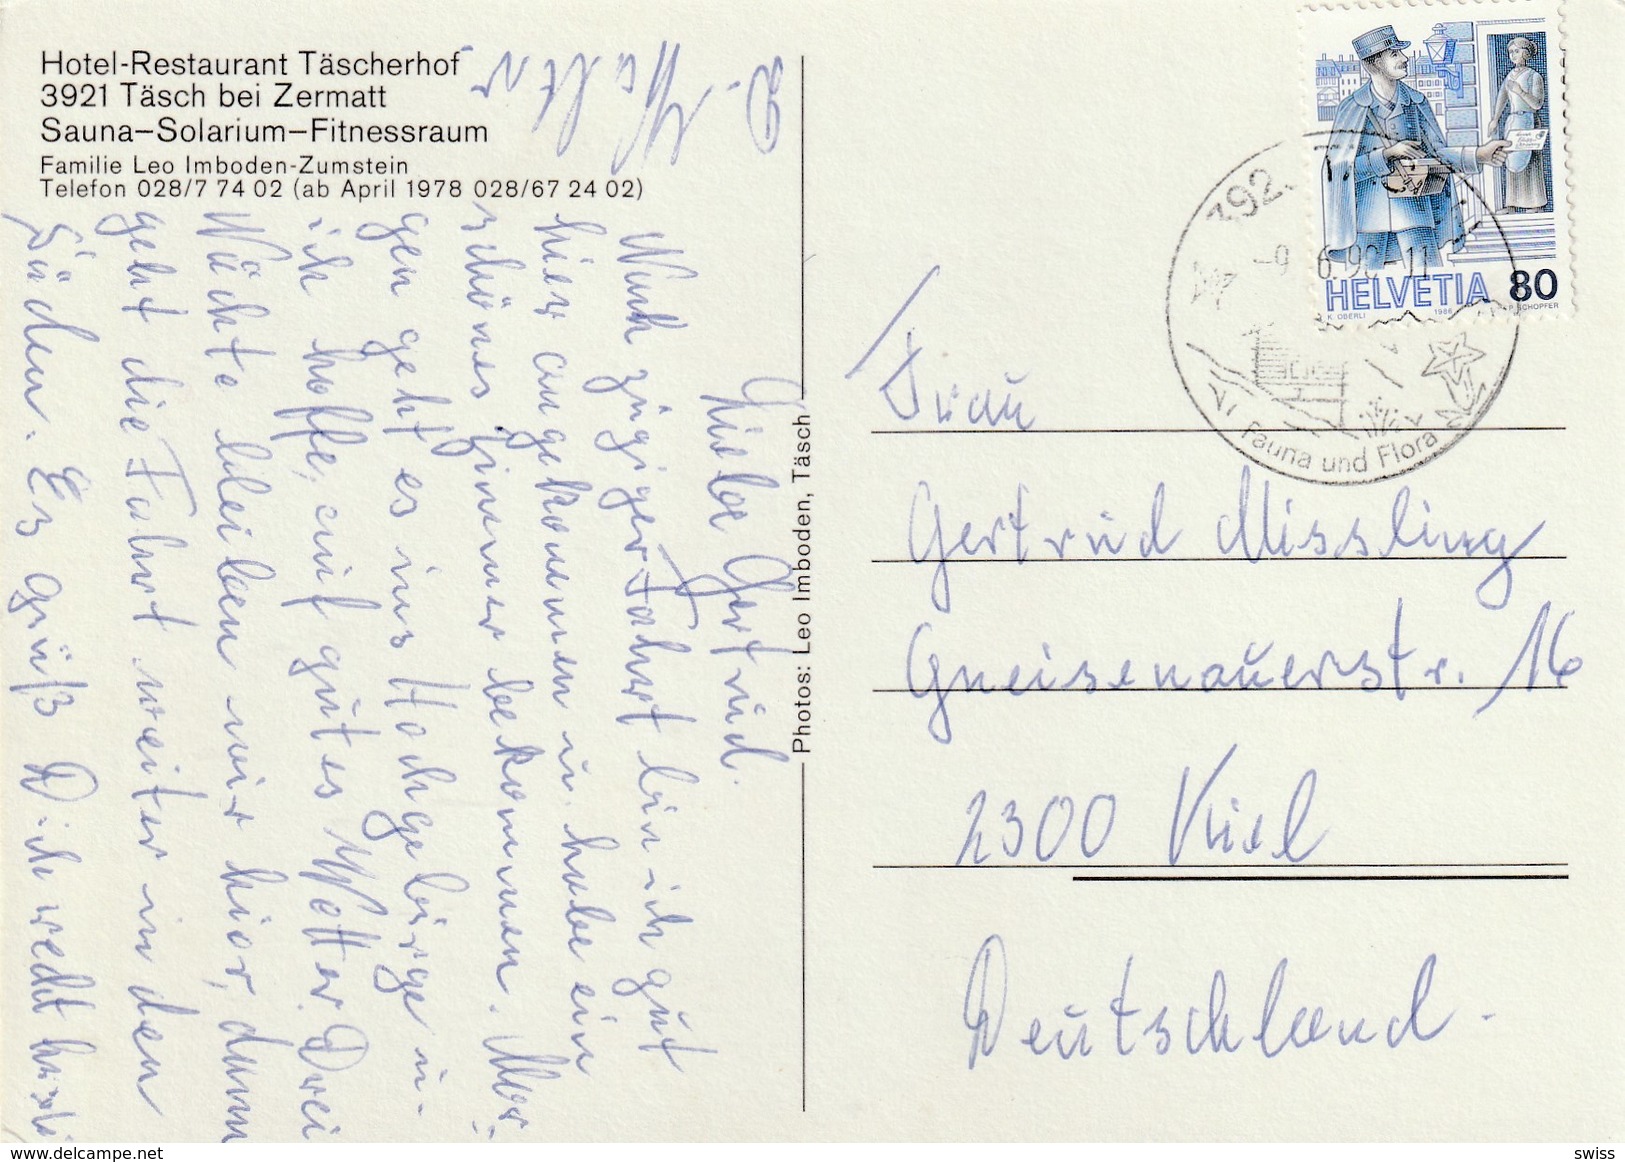 Hotel-Restaurant Täscherhof
3921 Täsch bei Zermatt
Sauna–Solarium–Fitnessraum
Familie Leo Imboden-Zumstein
Telefon 028/7 74 02 (ab April 1978 028/67 24 02)
Liebe Gertrud.
Nach zügiger Fahrt bin ich gut
hier angekommen u. habe ein
schönes Zimmer bekommen. Mor-
gen geht es ins Hochgebirge u.
ich hoffe, auf gutes Wetter. Drei
Nächte bleiben wir hier, dann
geht die Fahrt weiter in den
Süden. Es grüß Dich recht herzl.
D. Walter
Photos: Leo Imboden, Täsch
HELVETIA 80
K. OBERLI 1986 P. SCHOPFER
392
-9. 6.90-11
Fauna und Flora
Frau
Gertrud Missling
Gneisenauerstr. 16
2300 Kiel
Deutschland.
delcampe.net
swiss